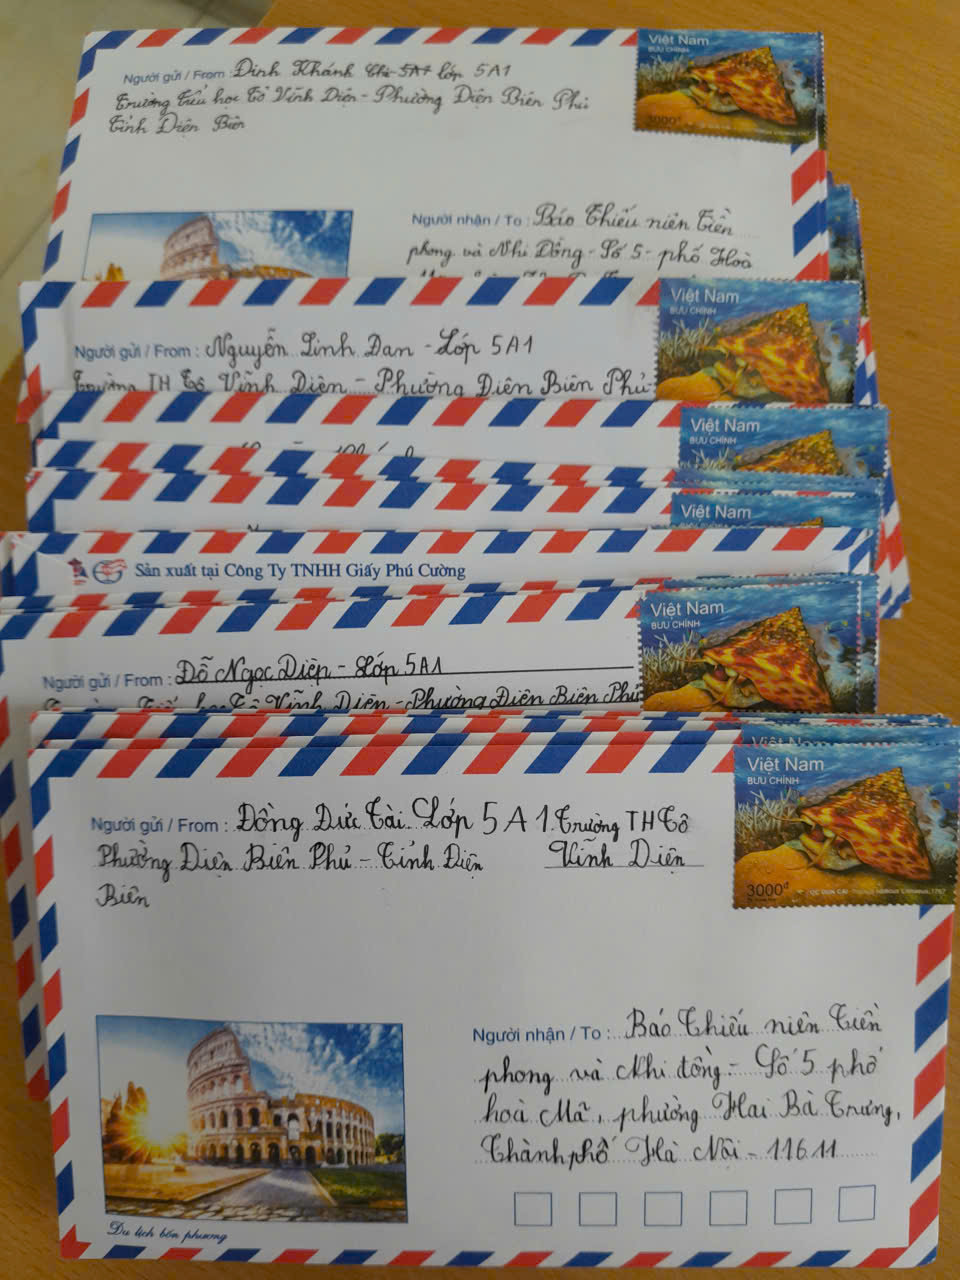 Việt Nam
BƯU CHÍNH
3000đ
Người gửi / From : Đinh Khánh Chi 5A1 lớp 5A1
Trường Tiểu học Tô Vĩnh Diện - Phường Điện Biên Phủ
Tỉnh Điện Biên
Người nhận / To : Báo Thiếu niên Tiền
phong và Nhi Đồng - Số 5 - phố Hoà
Việt Nam
BƯU CHÍNH
Người gửi / From : Nguyễn Linh Đan - Lớp 5A1
Trường TH Tô Vĩnh Diện - Phường Điện Biên Phủ
Việt Nam
BƯU CHÍNH
Việt Nam
Sản xuất tại Công Ty TNHH Giấy Phú Cường
Việt Nam
BƯU CHÍNH
Người gửi / From : Đỗ Ngọc Diệp - Lớp 5A1
Tô Vĩnh Diện - Phường Điện Biên Phủ
Việt Nam
Việt Nam
BƯU CHÍNH
3000đ
Người gửi / From : Đồng Đức Tài Lớp 5A1 Trường TH Tô
Phường Điện Biên Phủ - Tỉnh Điện Vĩnh Diện
Biên
Người nhận / To : Báo Thiếu niên Tiền
phong và Nhi đồng - Số 5 phố
hoà Mã, phường Hai Bà Trưng,
Thành phố Hà Nội - 11611
Du lịch bốn phương